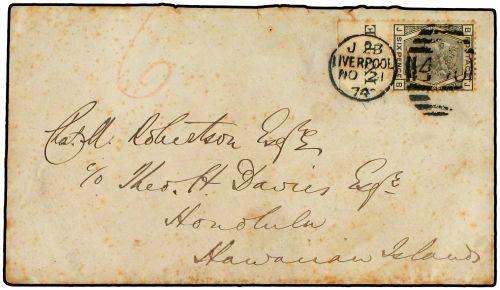 6
J 28
LIVERPOOL
NO 21
74
J SIX PENCE B
B J
Chas. M. Robertson Esqre
c/o Theo. H. Davies Esqre
Honolulu
Hawaiian Islands